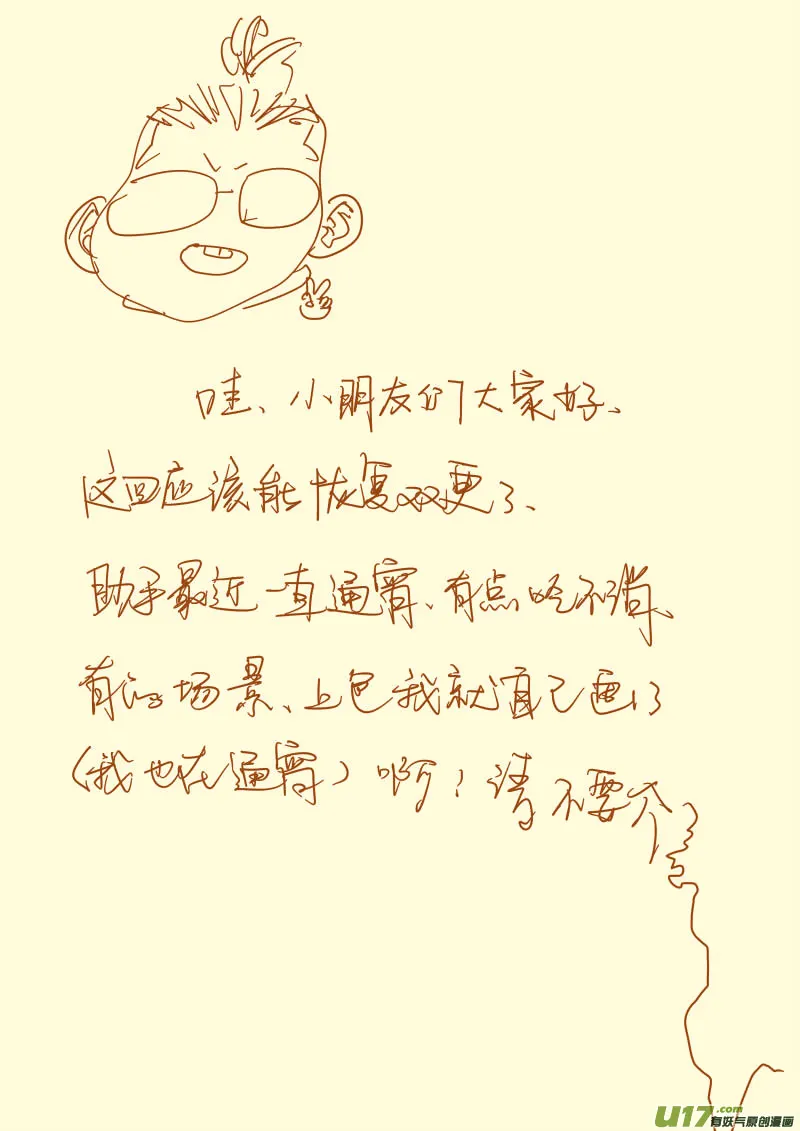 哇、小朋友们大家好、
这回应该能恢复双更了、
助手最近一直通宵、有点吃不消、
有的场景、上色我就自己画了
(我也在通宵)啊!请不要介
U17 有妖气原创漫画